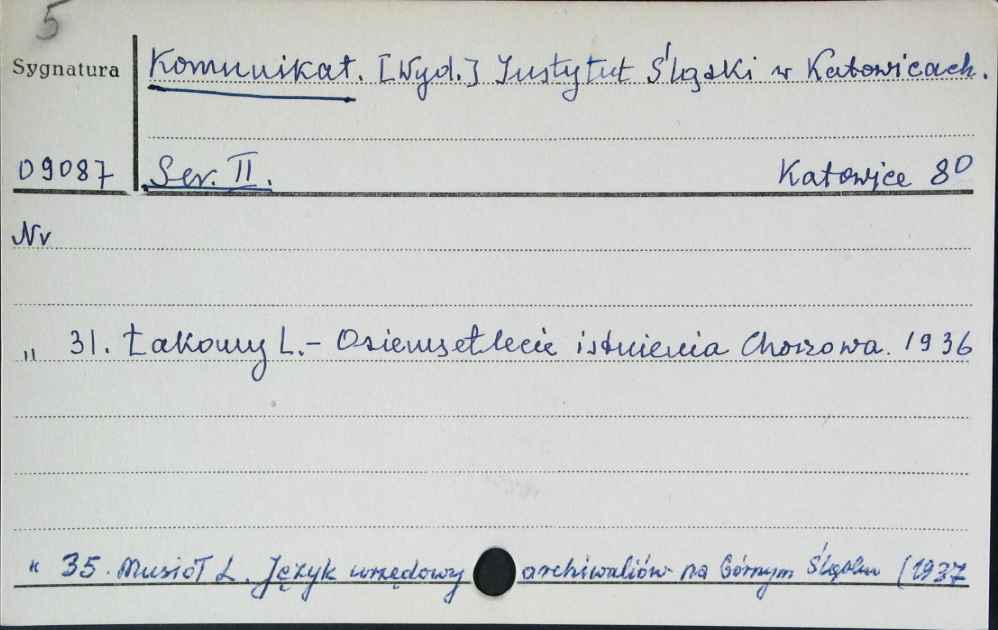 5
Sygnatura Komunikat. [Wyd.] Instytut Śląski w Katowicach.
09087 Ser. II. Katowice 8°
Nr
" 31. Łakomy L. - Osiemsetlecie istnienia Chorzowa. 1936
" 35. Musioł L. Język urzędowy archiwaliów na Górnym Śląsku (1937